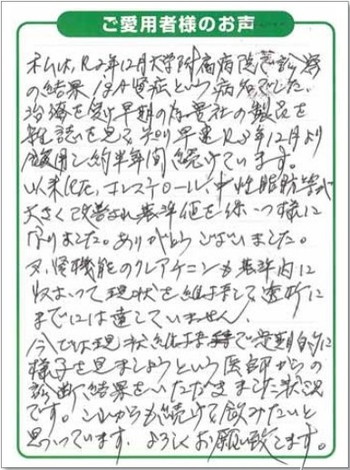 ご愛用者様のお声
私は、R2年12月大学附属病院を診察
の結果IgA腎症という病名でした。
治療を受け早期の内貴社の製品を
雑誌を見て知り早速R2年12月より
服用し約半年間続けています。
以来血圧、コレステロール、中性脂肪等が
大きく改善され基準値を保つ様に
なりました。ありがとうございました。
又、腎機能のクレアチニンも基準内に
収まって現状を維持して透析に
までには達していません。
今では現状維持で定期的に
様子を見ましょうという医師からの
診断結果をいただきました状況
です。これからも続けて飲みたいと
思っています。よろしくお願い致します。